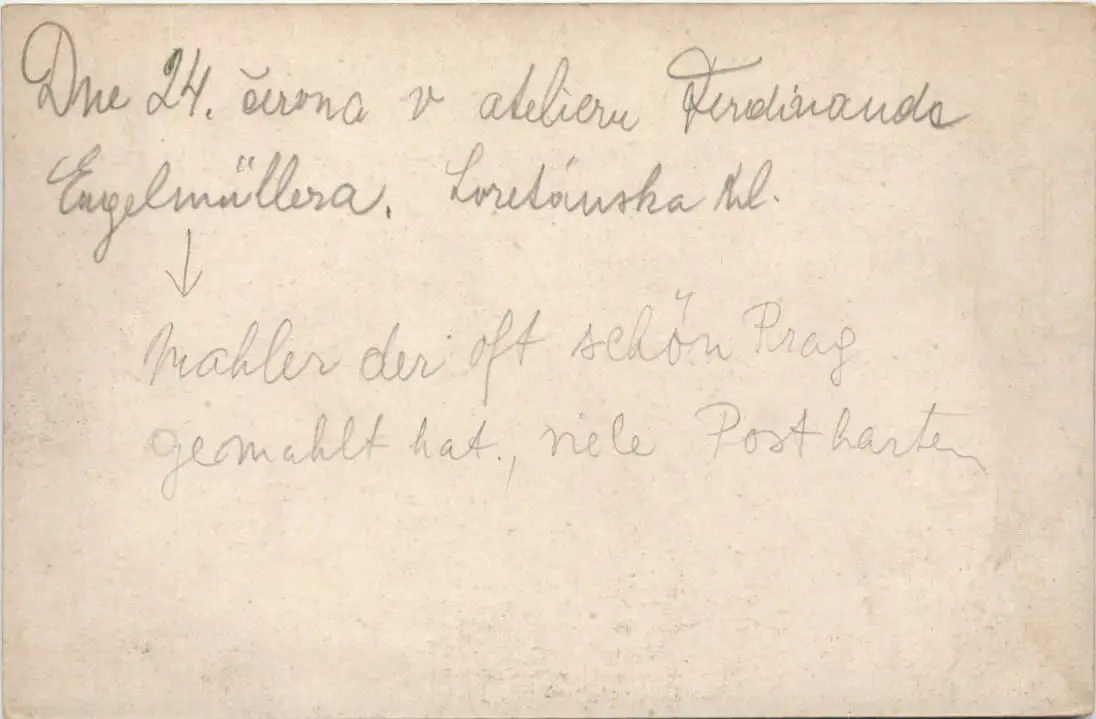 Dne 24. června v atelieru Ferdinanda
Engelmüllera. Loretánska Ul.
↓
Mahler der oft schön Prag
gemahlt hat., viele Postkarten